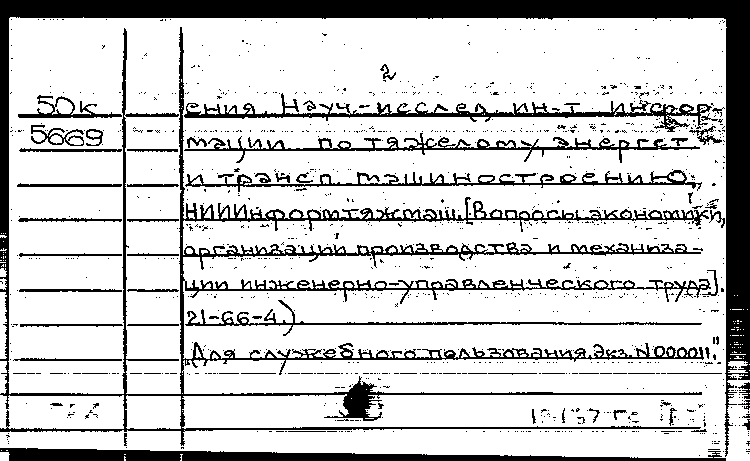 2
50к
5669
ения. Науч.-исслед. ин-т инфор-
мации по тяжелому, энергет
и трансп. машиностроению,
НИИИнформтяжмаш. [Вопросы экономики,
организации производства и механиза-
ции инженерно-управленческого труда].
21-66-4.).
"Для служебного пользования. Экз. N000011."